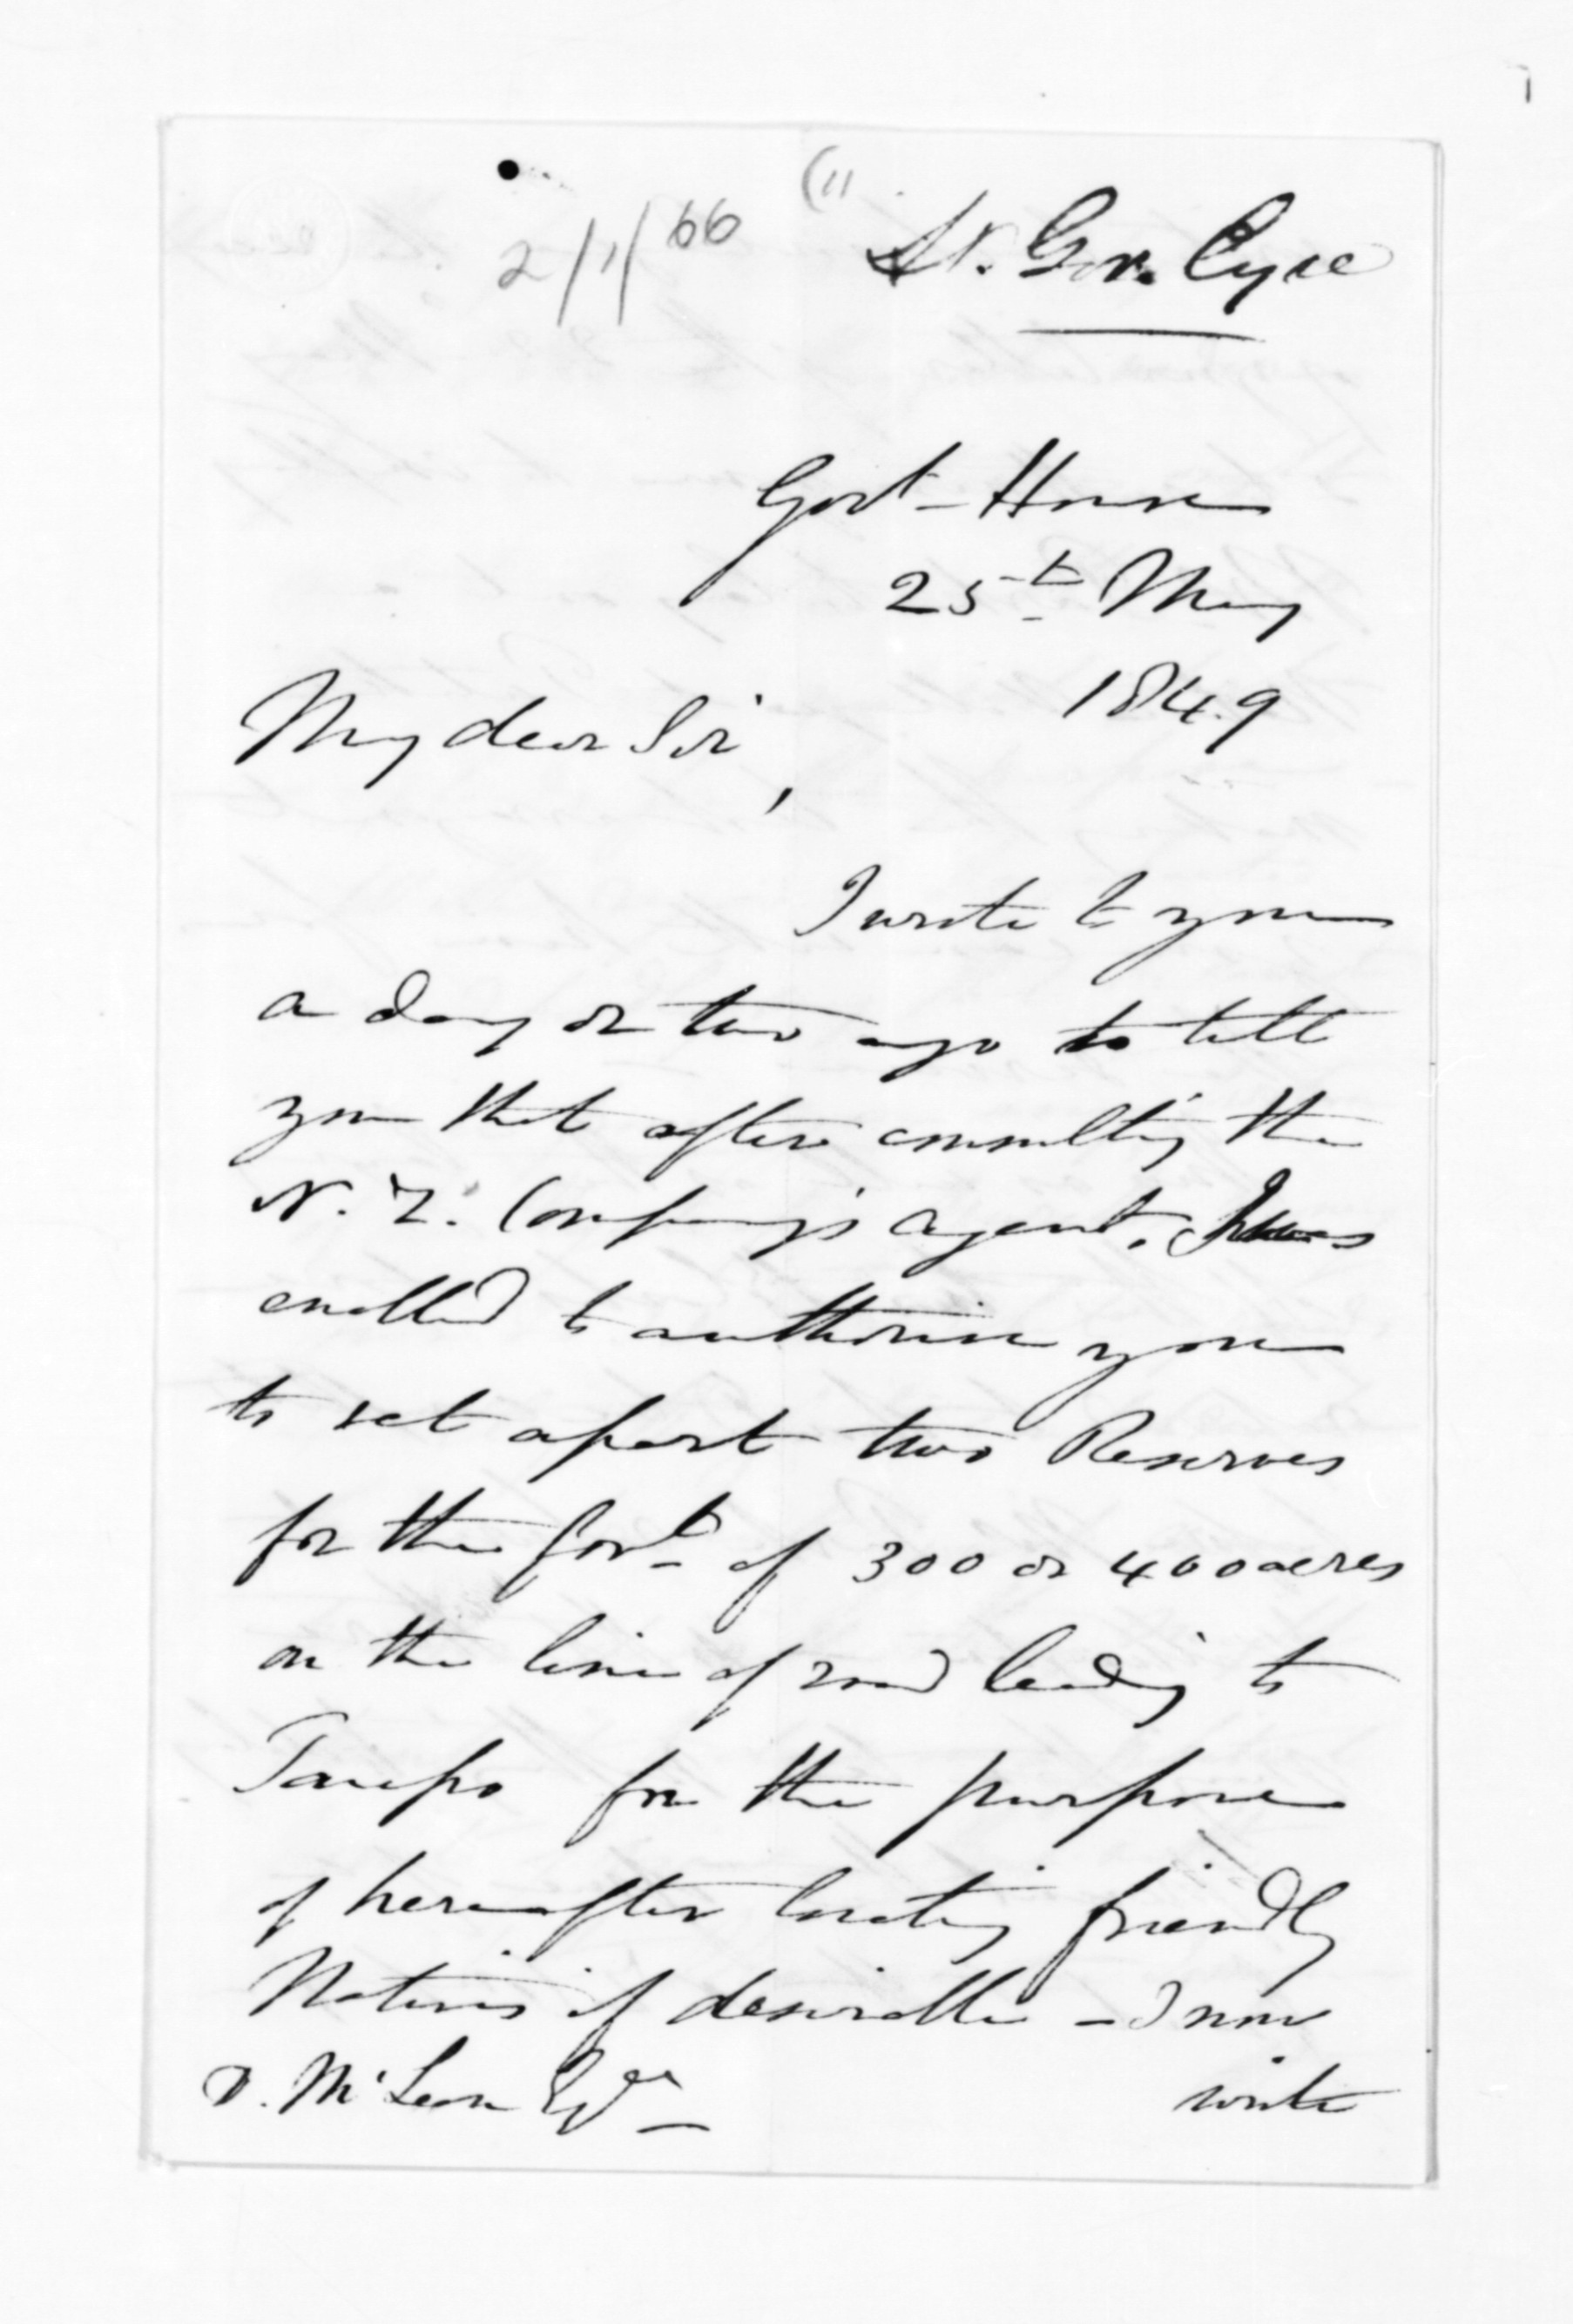 2/1/66 (11
Lt. Gov. Eyre
Govt- House
25th May
1849
My dear Sir,
I wrote to you
a day or two ago to tell
you that after consulting the
N. Z. Company's agent, I was
enabled to authorise you
to set apart two Reserves
for the Govt of 300 or 400 acres
on the line of road leading to
Taupo for the purpose
of hereafter locating friendly
Natives if desirable - I now
D. McLean Esqre
write